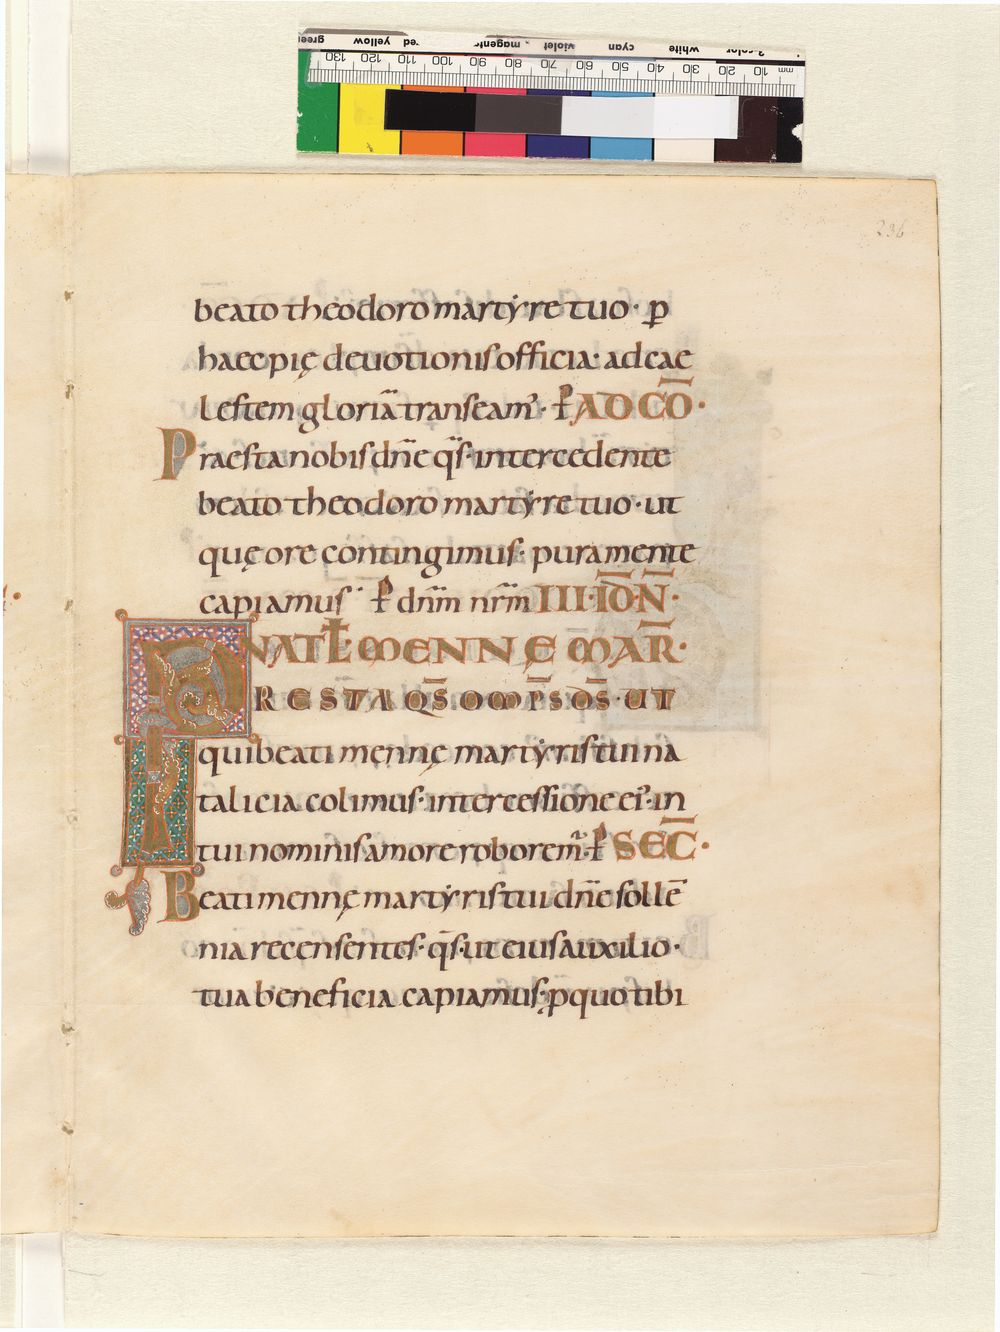 green yellow red magenta violet cyan white 3-color
130 120 110 100 90 80 70 60 50 40 30 20 10 mm
236
beato theodoro martẏre tuo· p̲
haec pię deuotionis officia· ad cae
lestem gloriā transeam᾽· P̲ AD CŌ·
Praesta nobis dn̄e qs̄· intercedente
beato theodoro martẏre tuo· ut
quę ore contingimus· pura mente
capiamus· P̲ dnm̄ nrm̄ III· ID̄· N̄·
NATL̄· MENNĘ MAR̄·
PRESTA QS̄ OMP̄S DS̄· UT
qui beati mennę martẏris tui na
talicia colimus· intercessione ei᾽· in
tui nominis amore roborem᾽· P̲ SEC̄·
Beati mennę martẏris tui dn̄e sollē
nia recensentes· qs̄· ut eius auxilio·
tua beneficia capiamus; p̲ quo tibi